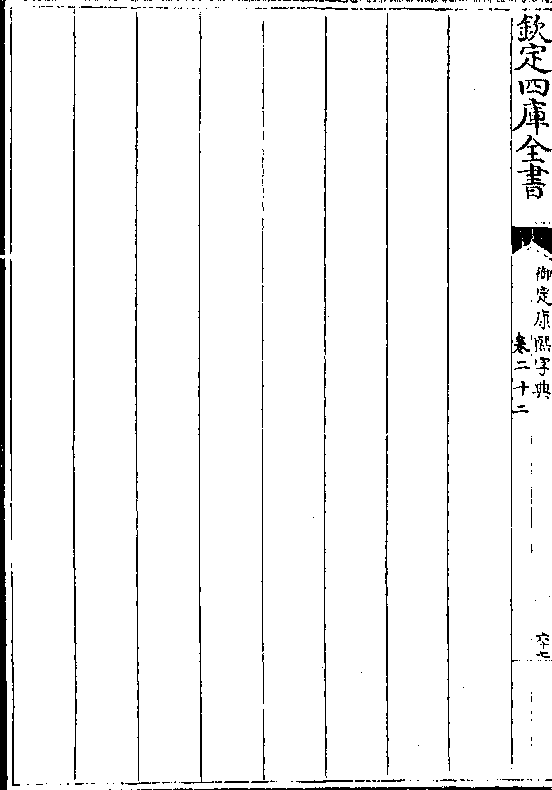 欽定四庫全書
御定康熙字典
卷二十二
六十七